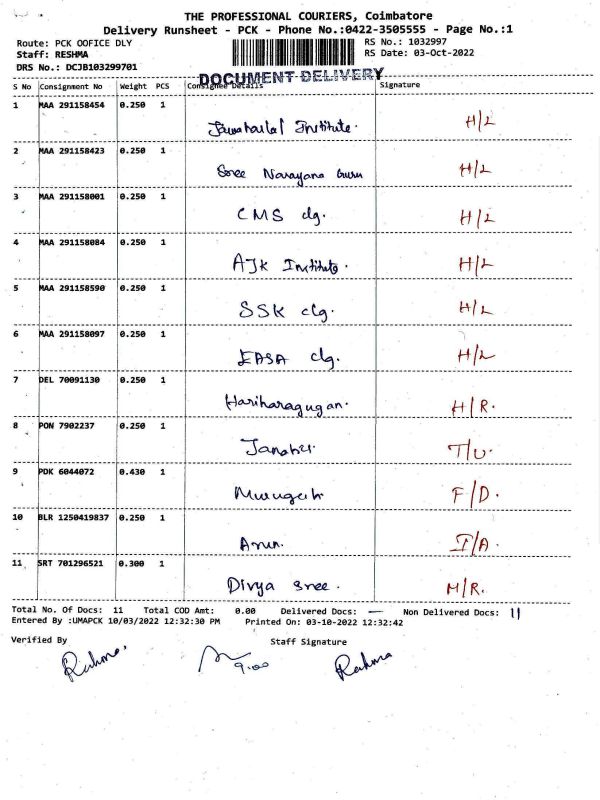 THE PROFESSIONAL COURIERS, Coimbatore
Delivery Runsheet - PCK - Phone No.:0422-3505555 - Page No.:1
Route: PCK OOFICE DLY RS No.: 1032997
Staff: RESHMA RS Date: 03-Oct-2022
DRS No.: DCJB103299701
DOCUMENT DELIVERY
S No Consignment No Weight PCS Consignee Details Signature
1 MAA 291158454 0.250 1 Jawaharlal Institute. H/L
2 MAA 291158423 0.250 1 Sree Narayana Guru H/L
3 MAA 291158001 0.250 1 CMS clg. H/L
4 MAA 291158084 0.250 1 AJK Institute. H/L
5 MAA 291158590 0.250 1 SSK clg. H/L
6 MAA 291158097 0.250 1 EASA clg. H/L
7 DEL 70091130 0.250 1 Hariharagugan. H/R.
8 PON 7902237 0.250 1 T/U.
9 PDK 6044072 0.430 1 F/D.
10 BLR 1250419837 0.250 1 Arun. I/A.
11 SRT 701296521 0.300 1 Divya Sree. M/R.
Total No. Of Docs: 11 Total COD Amt: 0.00 Delivered Docs: — Non Delivered Docs: 11
Entered By :UMAPCK 10/03/2022 12:32:30 PM Printed On: 03-10-2022 12:32:42
Verified By Staff Signature
9.00